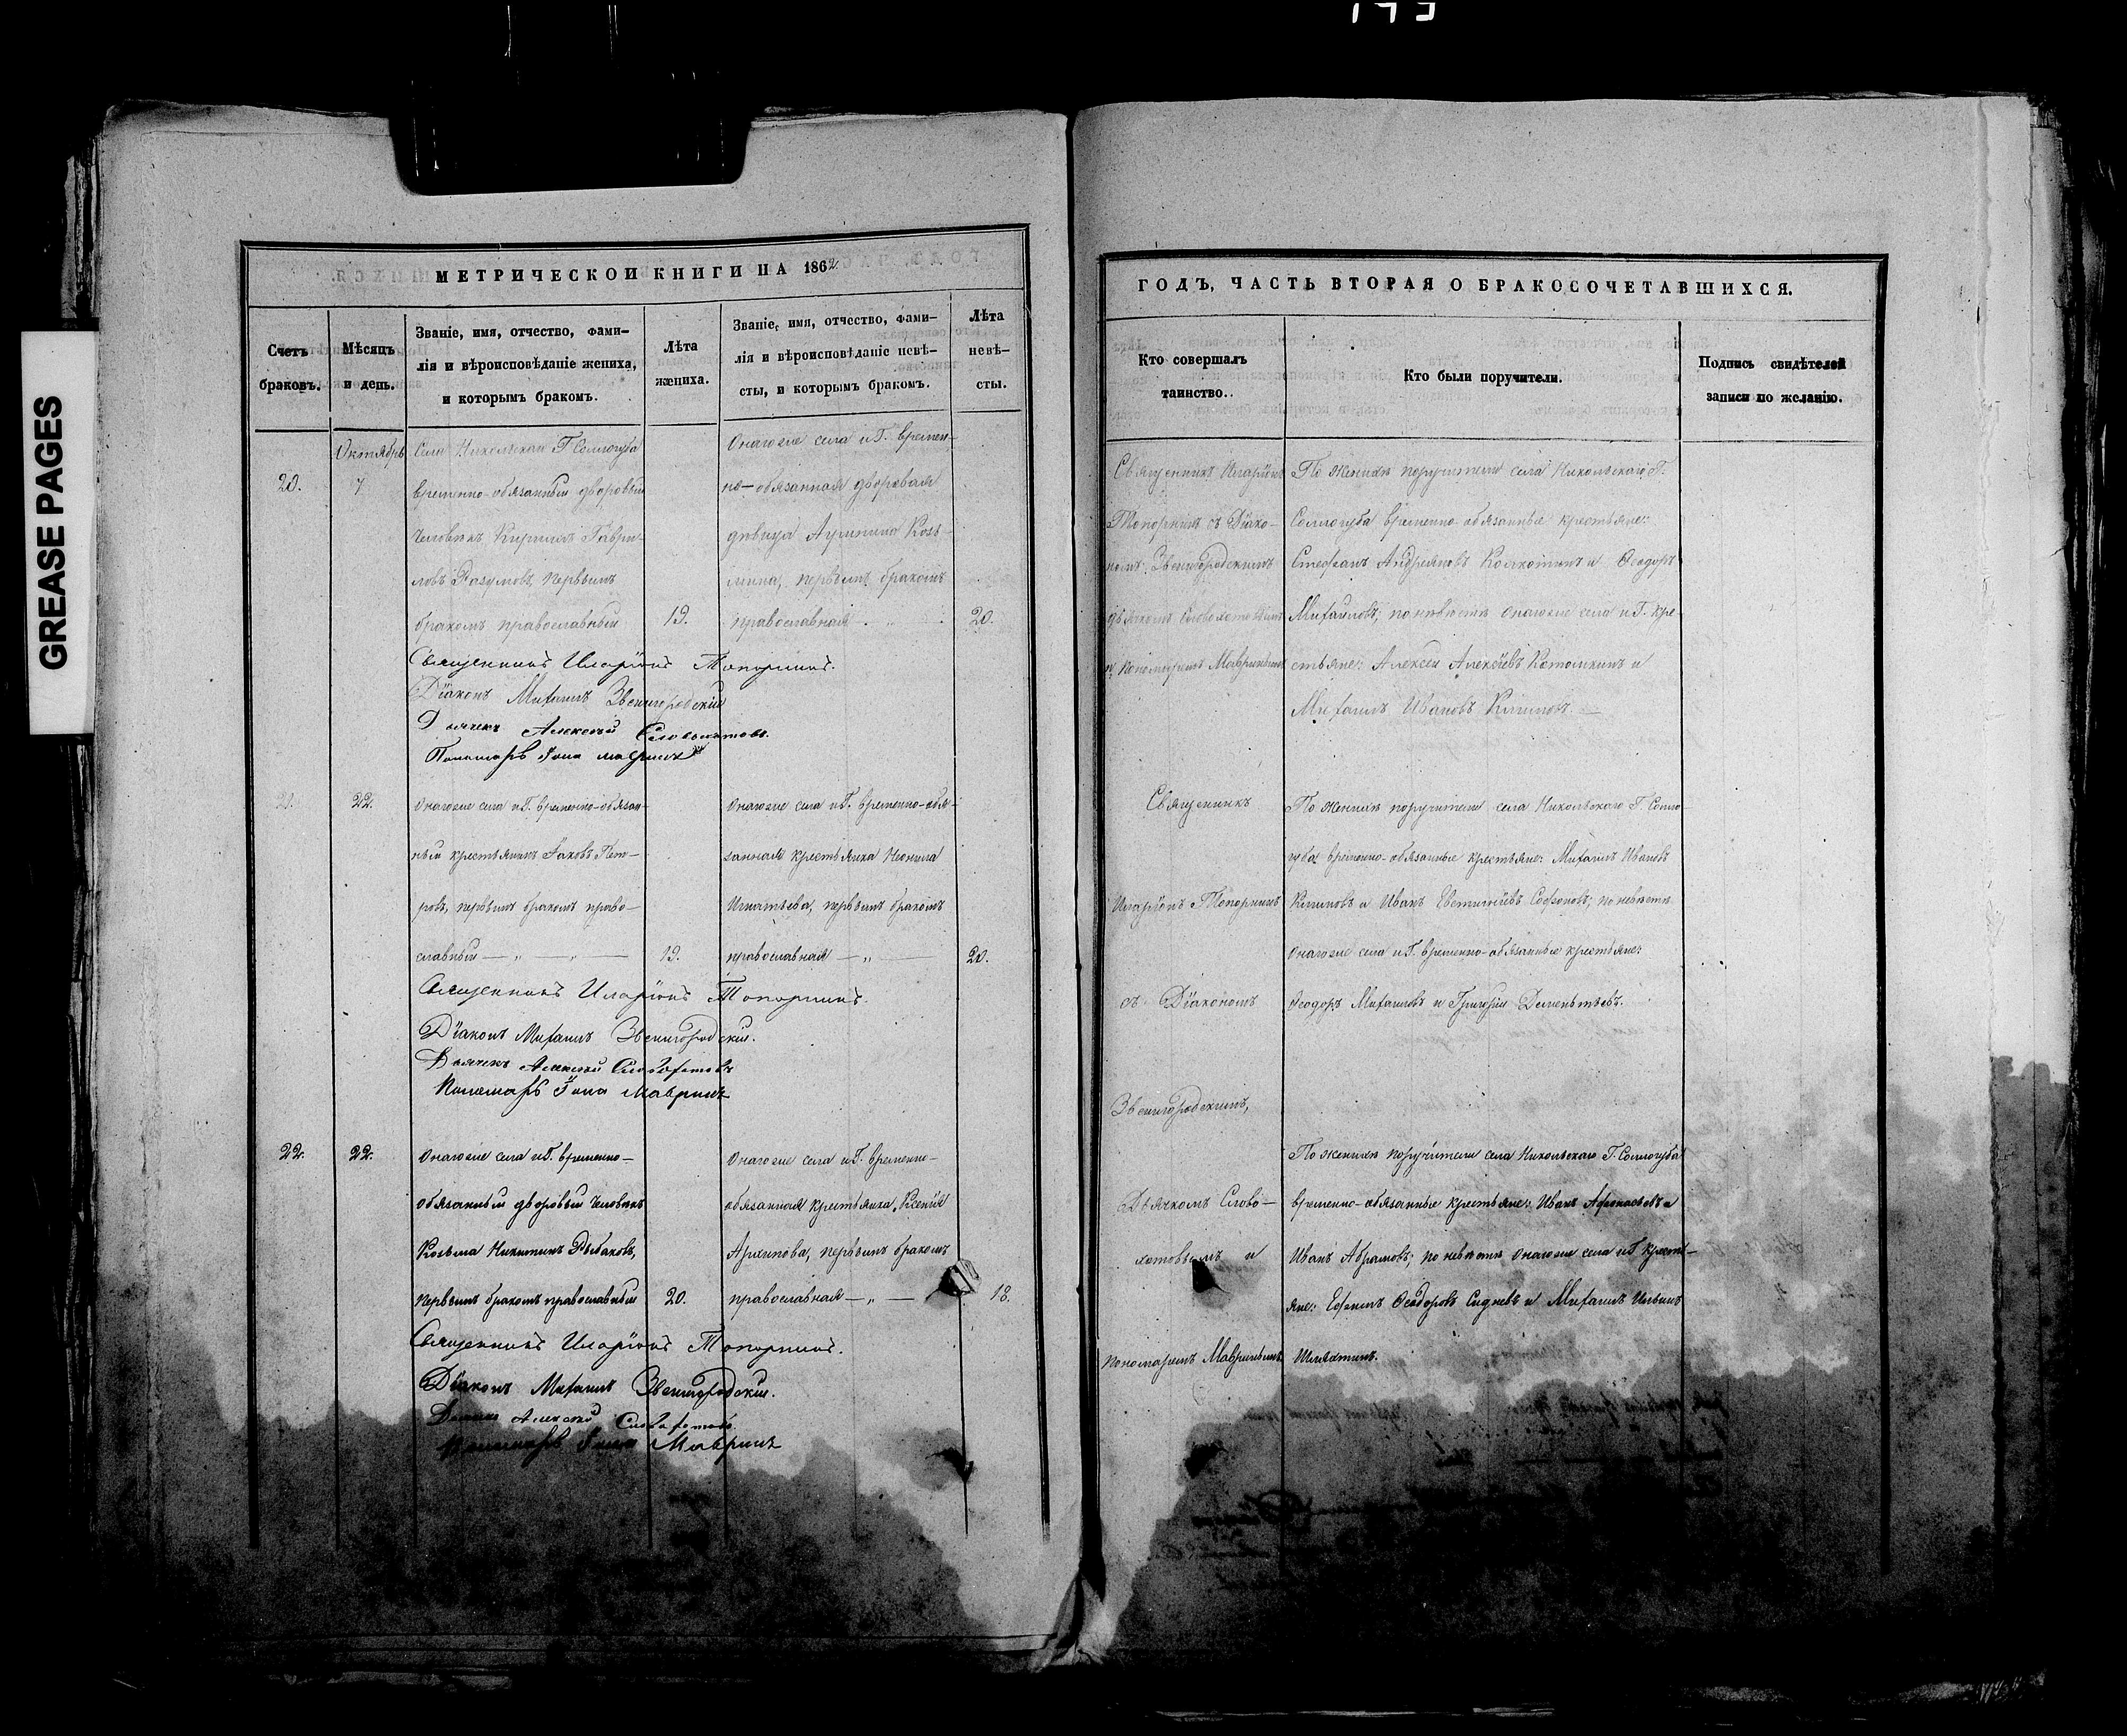 GREASE PAGES
МЕТРИЧЕСКОЙ КНИГИ НА 1862
Счетъ браковъ.
Мѣсяцъ и день.
Званіе, имя, отчество, фами-
лія и вѣроисповѣданіе жениха,
и которымъ бракомъ.
Лѣта жениха.
Званіе, имя, отчество, фами-
лія и вѣроисповѣданіе невѣ-
сты, и которымъ бракомъ.
Лѣта невѣ-
сты.
Октябрь
20.
7
Села Никольскаго Г. Соллогуба
временно-обязанный дворовый
человѣкъ Кириллъ Гаври-
ловъ Разумовъ, первымъ
бракомъ православный
19.
Онагоже села и Г. времен-
но-обязанная дворовая
дѣвица Акулина Козь-
мина, первымъ бракомъ
православная
20.
Священникъ Иларіонъ Топорнинъ.
Діаконъ Михаилъ Звенигородскій
Дьячекъ Алексѣй Словохотовъ.
Пономарь Іона Мавринъ
21.
22.
Онагоже села и Г. временно-обязан-
ный крестьянинъ Яковъ Пет-
ровъ, первымъ бракомъ право-
славный — „ — „ —
19.
Онагоже села и Г. временно-обя-
занная крестьянка Неонила
Игнатьева, первымъ бракомъ
православная — „ —
20.
Священникъ Иларіонъ Топорнинъ.
Діаконъ Михаилъ Звенигородскій.
Дьячекъ Алексѣй Словохотовъ
Пономарь Іона Мавринъ
22.
22.
Онагоже села и Г. временно-
обязанный дворовый человѣкъ
Козьма Никитинъ Рыбаковъ,
первымъ бракомъ православный
20.
Онагоже села и Г. временно-
обязанная крестьянка Ксенія
Архипова, первымъ бракомъ
православная — „ —
18.
Священникъ Иларіонъ Топорнинъ.
Діаконъ Михаилъ Звенигородскій.
Дьячекъ Алексѣй Словохотовъ
Пономарь Іона Мавринъ
ГОДЪ, ЧАСТЬ ВТОРАЯ О БРАКОСОЧЕТАВШИХСЯ.
Кто совершалъ
таинство.
Кто были поручители.
Подпись свидѣтелей
записи по желанію.
Священникъ Иларіонъ
Топорнинъ съ Діако-
номъ Звенигородскимъ
дьячкомъ Словохотовымъ
и Пономаремъ Мавринымъ
По женихѣ поручители села Никольскаго Г.
Соллогуба временно-обязанные крестьяне:
Стефанъ Андреяновъ и Ѳеодоръ
Михайловъ; по невѣстѣ онагоже села и Г. кре-
стьяне: Алексѣй Алексѣевъ и
Михаилъ Ивановъ
Священникъ
Иларіонъ Топорнинъ
съ Діакономъ
Звенигородскимъ,
Дьячкомъ Слово-
хотовымъ и
Пономаремъ Мавринымъ
По женихѣ поручители села Никольскаго Г. Солло-
губа временно-обязанные крестьяне: Михаилъ Ивановъ
и Иванъ Евтихіевъ Софоновъ; по невѣстѣ
онагоже села и Г. временно-обязанные крестьяне:
Ѳеодоръ Михайловъ и Григорій Дементьевъ.
По женихѣ поручители села Никольскаго Г. Соллогуба
временно-обязанные крестьяне: Иванъ Афонасьевъ и
Иванъ Абрамовъ; по невѣстѣ онагоже села и Г. кресть-
яне: Ефимъ Ѳеодоровъ и Михаилъ Ильинъ
Шляхтинъ.